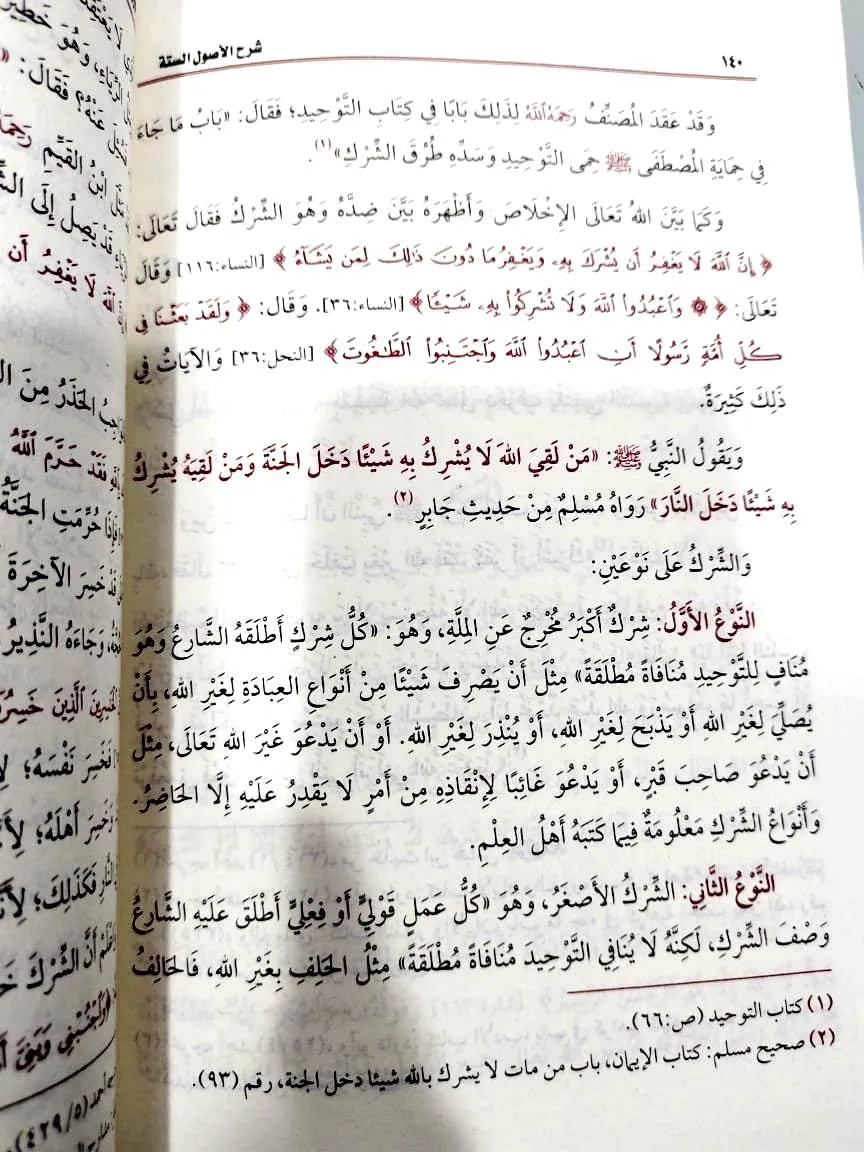 ١٤٠
شرح الأصول الستة
وَقَدْ عَقَدَ المُصَنِّفُ رَحِمَهُ اللَّهُ لِذَلِكَ بَابًا فِي كِتَابِ التَّوْحِيدِ؛ فَقَالَ: «بَابُ مَا جَاءَ
فِي حِمَايَةِ المُصْطَفَى ﷺ حِمَى التَّوْحِيدِ وَسَدِّهِ طُرُقَ الشِّرْكِ»(١).
وَكَمَا بَيَّنَ اللهُ تَعَالَى الإِخْلَاصَ وَأَظْهَرَهُ بَيَّنَ ضِدَّهُ وَهُوَ الشِّرْكُ فَقَالَ تَعَالَى:
﴿ إِنَّ اللَّهَ لَا يَغْفِرُ أَن يُشْرَكَ بِهِ، وَيَغْفِرُ مَا دُونَ ذَلِكَ لِمَن يَشَآءُ ﴾ [النساء:١١٦] وَقَالَ
تَعَالَى: ﴿ ۞ وَاعْبُدُوا اللَّهَ وَلَا تُشْرِكُوا بِهِ، شَيْئًا﴾ [النساء:٣٦]. وَقَالَ: ﴿ وَلَقَدْ بَعَثْنَا فِي
كُلِّ أُمَّةٍ رَّسُولًا أَنِ اعْبُدُوا اللَّهَ وَاجْتَنِبُوا الطَّاغُوتَ﴾ [النحل:٣٦] وَالآيَاتُ فِي
ذَلِكَ كَثِيرَةٌ.
وَيَقُولُ النَّبِيُّ ﷺ: «مَنْ لَقِيَ اللهَ لَا يُشْرِكُ بِهِ شَيْئًا دَخَلَ الجَنَّةَ وَمَنْ لَقِيَهُ يُشْرِكُ
بِهِ شَيْئًا دَخَلَ النَّارَ» رَوَاهُ مُسْلِمٌ مِنْ حَدِيثِ جَابِرٍ(٢).
وَالشِّرْكُ عَلَى نَوْعَيْنِ:
النَّوْعُ الأَوَّلُ: شِرْكٌ أَكْبَرُ مُخْرِجٌ عَنِ المِلَّةِ، وَهُوَ: «كُلُّ شِرْكٍ أَطْلَقَهُ الشَّارِعُ وَهُوَ
مُنَافٍ لِلتَّوْحِيدِ مُنَافَاةً مُطْلَقَةً» مِثْلَ أَنْ يَصْرِفَ شَيْئًا مِنْ أَنْوَاعِ العِبَادَةِ لِغَيْرِ اللهِ، بِأَنْ
يُصَلِّيَ لِغَيْرِ اللهِ أَوْ يَذْبَحَ لِغَيْرِ اللهِ، أَوْ يُنْذِرَ لِغَيْرِ اللهِ. أَوْ أَنْ يَدْعُوَ غَيْرَ اللهِ تَعَالَى، مِثْلَ
أَنْ يَدْعُوَ صَاحِبَ قَبْرٍ، أَوْ يَدْعُوَ غَائِبًا لِإِنْقَاذِهِ مِنْ أَمْرٍ لَا يَقْدِرُ عَلَيْهِ إِلَّا الحَاضِرُ.
وَأَنْوَاعُ الشِّرْكِ مَعْلُومَةٌ فِيمَا كَتَبَهُ أَهْلُ العِلْمِ.
النَّوْعُ الثَّانِي: الشِّرْكُ الأَصْغَرُ، وَهُوَ «كُلُّ عَمَلٍ قَوْلِيٍّ أَوْ فِعْلِيٍّ أَطْلَقَ عَلَيْهِ الشَّارِعُ
وَصْفَ الشِّرْكِ، لَكِنَّهُ لَا يُنَافِي التَّوْحِيدَ مُنَافَاةً مُطْلَقَةً» مِثْلُ الحَلِفِ بِغَيْرِ اللهِ، فَالحَالِفُ
(١) كتاب التوحيد (ص:٦٦).
(٢) صحيح مسلم: كتاب الإيمان، باب من مات لا يشرك بالله شيئا دخل الجنة، رقم (٩٣).
وَهُوَ خَطِيرٌ
عَنْهُ؟ فَقَالَ:
ابْنُ القَيِّمِ
قَدْ يَصِلُ إِلَى
لَا يَغْفِرُ أَن
الحَذَرُ مِنَ
فَقَدْ حَرَّمَ اللَّهُ
فَإِذَا حُرِّمَتِ الجَنَّةُ
قَدْ خَسِرَ الآخِرَةَ
وَجَاءَهُ النَّذِيرُ
الَّذِينَ
خَسِرَ نَفْسَهُ؛
وَخَسِرَ أَهْلَهُ؛
فَكَذَلِكَ؛
أَنَّ الشِّرْكَ
وَاجْنُبْنِي وَبَنِيَّ
(٤٢٩/٥)